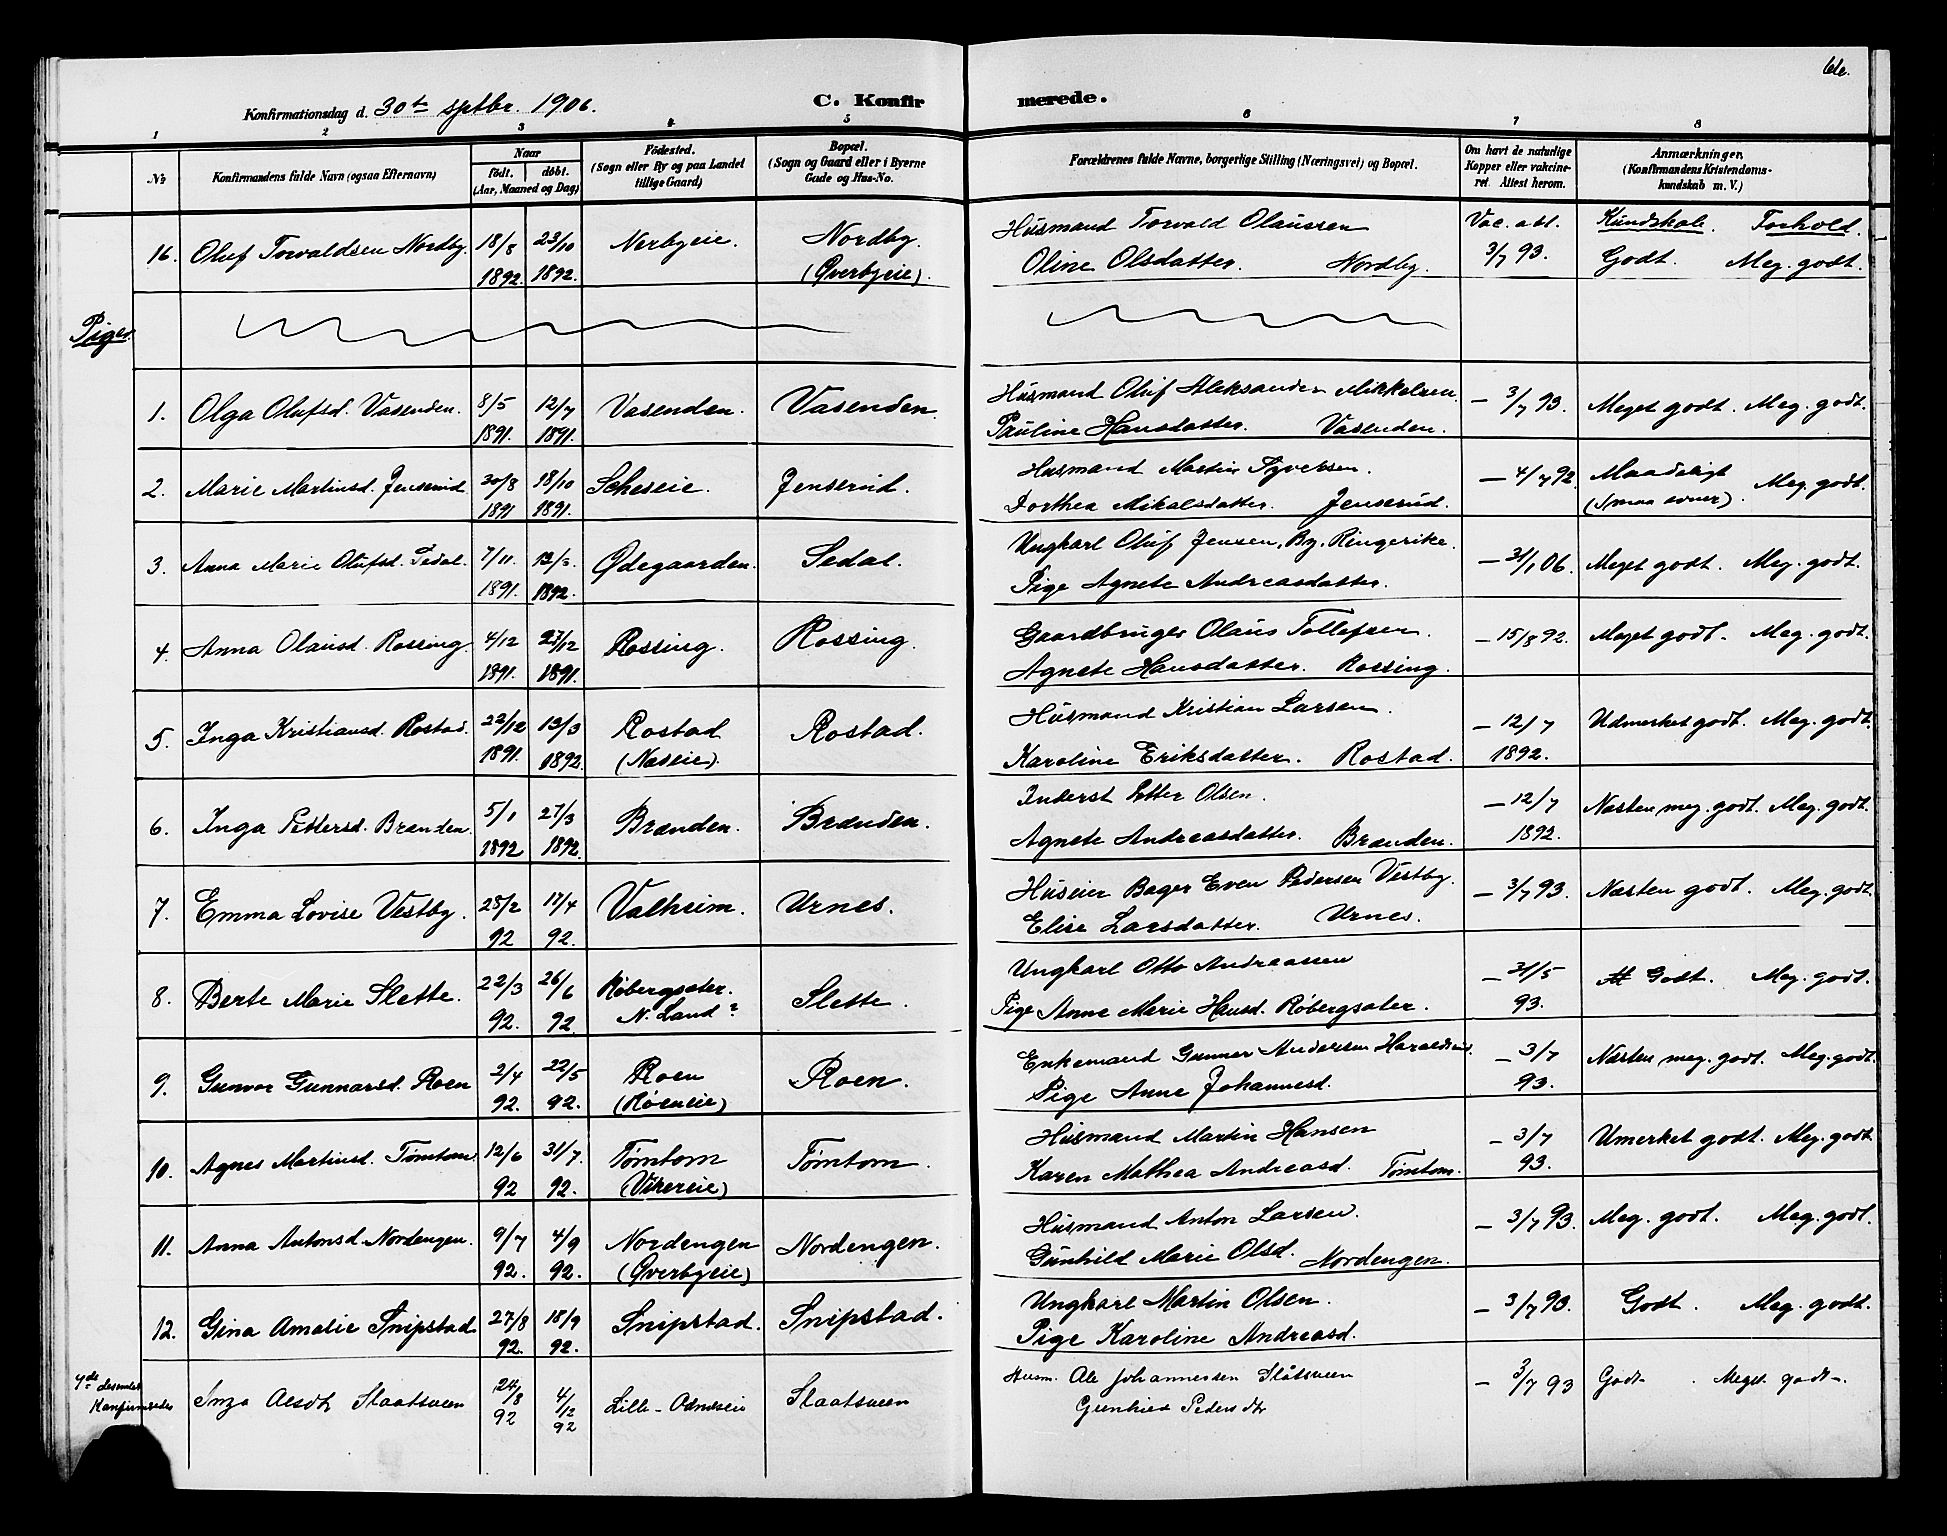 Konfirmationsdag d. 30te septbr. 1906. C. Konfirmerede. 66.
1 2 3 4 5 6 7 8
No Konfirmandens fulde Navn (ogsaa Efternavn) Naar født. døbt. (Aar, Maaned og Dag) Fødested. (Sogn eller By og paa Landet tillige Gaard) Bopæl. (Sogn og Gaard eller i Byerne Gade og Hus-No. Forældrenes fulde Navne, borgerlige Stilling (Næringsvei) og Bopæl. Om havt de naturlige Kopper eller vakcineret. Attest herom. Anmærkninger. (Konfirmandens Kristendomskundskab m. V.)
Kundskab. Forhold.
16. Oluf Torvaldsen Nordby. 18/8 1892. 23/10 1892. Nerbyeie. Nordby. (Øverbyeie). Husmand Torvald Olaussen
Oline Olsdatter. Nordby. Vac. att. 3/7 93. Godt. Meg. godt.
Piger
1. Olga Olufsd. Vasenden. 8/5 1891. 12/7 1891. Vasenden. Vasenden. Husmand Oluf Aleksander Mikkelsen.
Pauline Hansdatter. Vasenden. — 3/7 93. Meget godt. Meg. godt.
2. Marie Martinsd. Jenserud 30/8 1891 18/10 1891. Scheseie. Jenserud. Husmand Martin Syversen.
Dorthea Mikalsdatter. Jenserud. — 4/7 92. Maadeligt (Smaa evner). Meg. godt.
3. Anna Marie Olufsd. Sedal. 7/11 1891. 13/3 1892. Ødegaarden. Sedal. Ungkarl Oluf Jensen, By, Ringerike.
Pige Agnete Andreasdatter. — 31/1 06. Meget godt. Meg. godt.
4. Anna Olausd. Rossing 4/12 1891. 27/12 1891. Rossing. Rossing. Gaardbruger Olaus Tollefsen.
Agnete Hansdatter. Rossing. — 15/8 92. Meget godt. Meg. godt.
5. Inga Kristiansd. Rostad. 22/12 1891. 13/3 1892. Rostad (Næseie). Rostad. Husmand Kristian Larsen.
Karoline Eriksdatter. Rostad. — 12/7 1892. Udmerket godt. Meg. godt.
6. Inga Pettersd. Brænden. 5/1 1892 27/3 1892. Brænden. Brænden. Inderst Petter Olsen.
Agnete Andreasdatter. Brænden. — 12/7 1892. Næsten meg. godt. Meg. godt.
7. Emma Lovise Vestby. 28/2 92 17/4 92. Valheim. Urnes. Huseier Bager Even Pedersen Vestby.
Elise Larsdatter. Urnes. — 3/7 93. Næsten godt. Meg. godt.
8. Berte Marie Slette. 22/3 92. 26/6 92 Røbergsæter. N. Land? Slette. Ungkarl Otto Andreassen
Pige Anne Marie Hansd. Røbergsæter. — 31/5 93. Godt. Meg. godt.
9. Gunvor Gunnarsd. Roen 2/4 92. 22/5 92. Roen (Røeneie) Roen. Enkemand Gunnar Andersen Haraldsrud.
Pige Anne Johannesd. — 3/7 93. Næsten meg. godt. Meg. godt.
10. Agnes Martinsd. Tømtom. 12/6 92 31/7. 92. Tømtom (Vikereie) Tømtom. Husmand Martin Hansen
Karen Mathea Andreasd. Tømtom. — 3/7 93. Umerket godt. Meg. godt.
11. Anna Antonsd. Nordengen. 9/7 92. 4/9 92. Nordengen (Øverbyeie) Nordengen. Husmand Anton Larsen.
Gunhild Marie Olsd. Nordengen. — 3/7 93. Meg. godt. Meg. godt.
12. Gina Amalie Snipstad 27/8 92. 18/9 92. Snipstad. Snipstad. Ungkarl Martin Olsen.
Pige Karoline Andreasd. — 3/7 93. Godt. Meg. godt.
Konfirmeredes Inga Alesdtr Slaatsveen 24/8 92 4/12 92 Lille-Odnæseie Slaatsveen Husm. Ale Johannessen Slåtsveen
Gunhild Pedersdtr — 3/7 93 Godt. Meget godt.